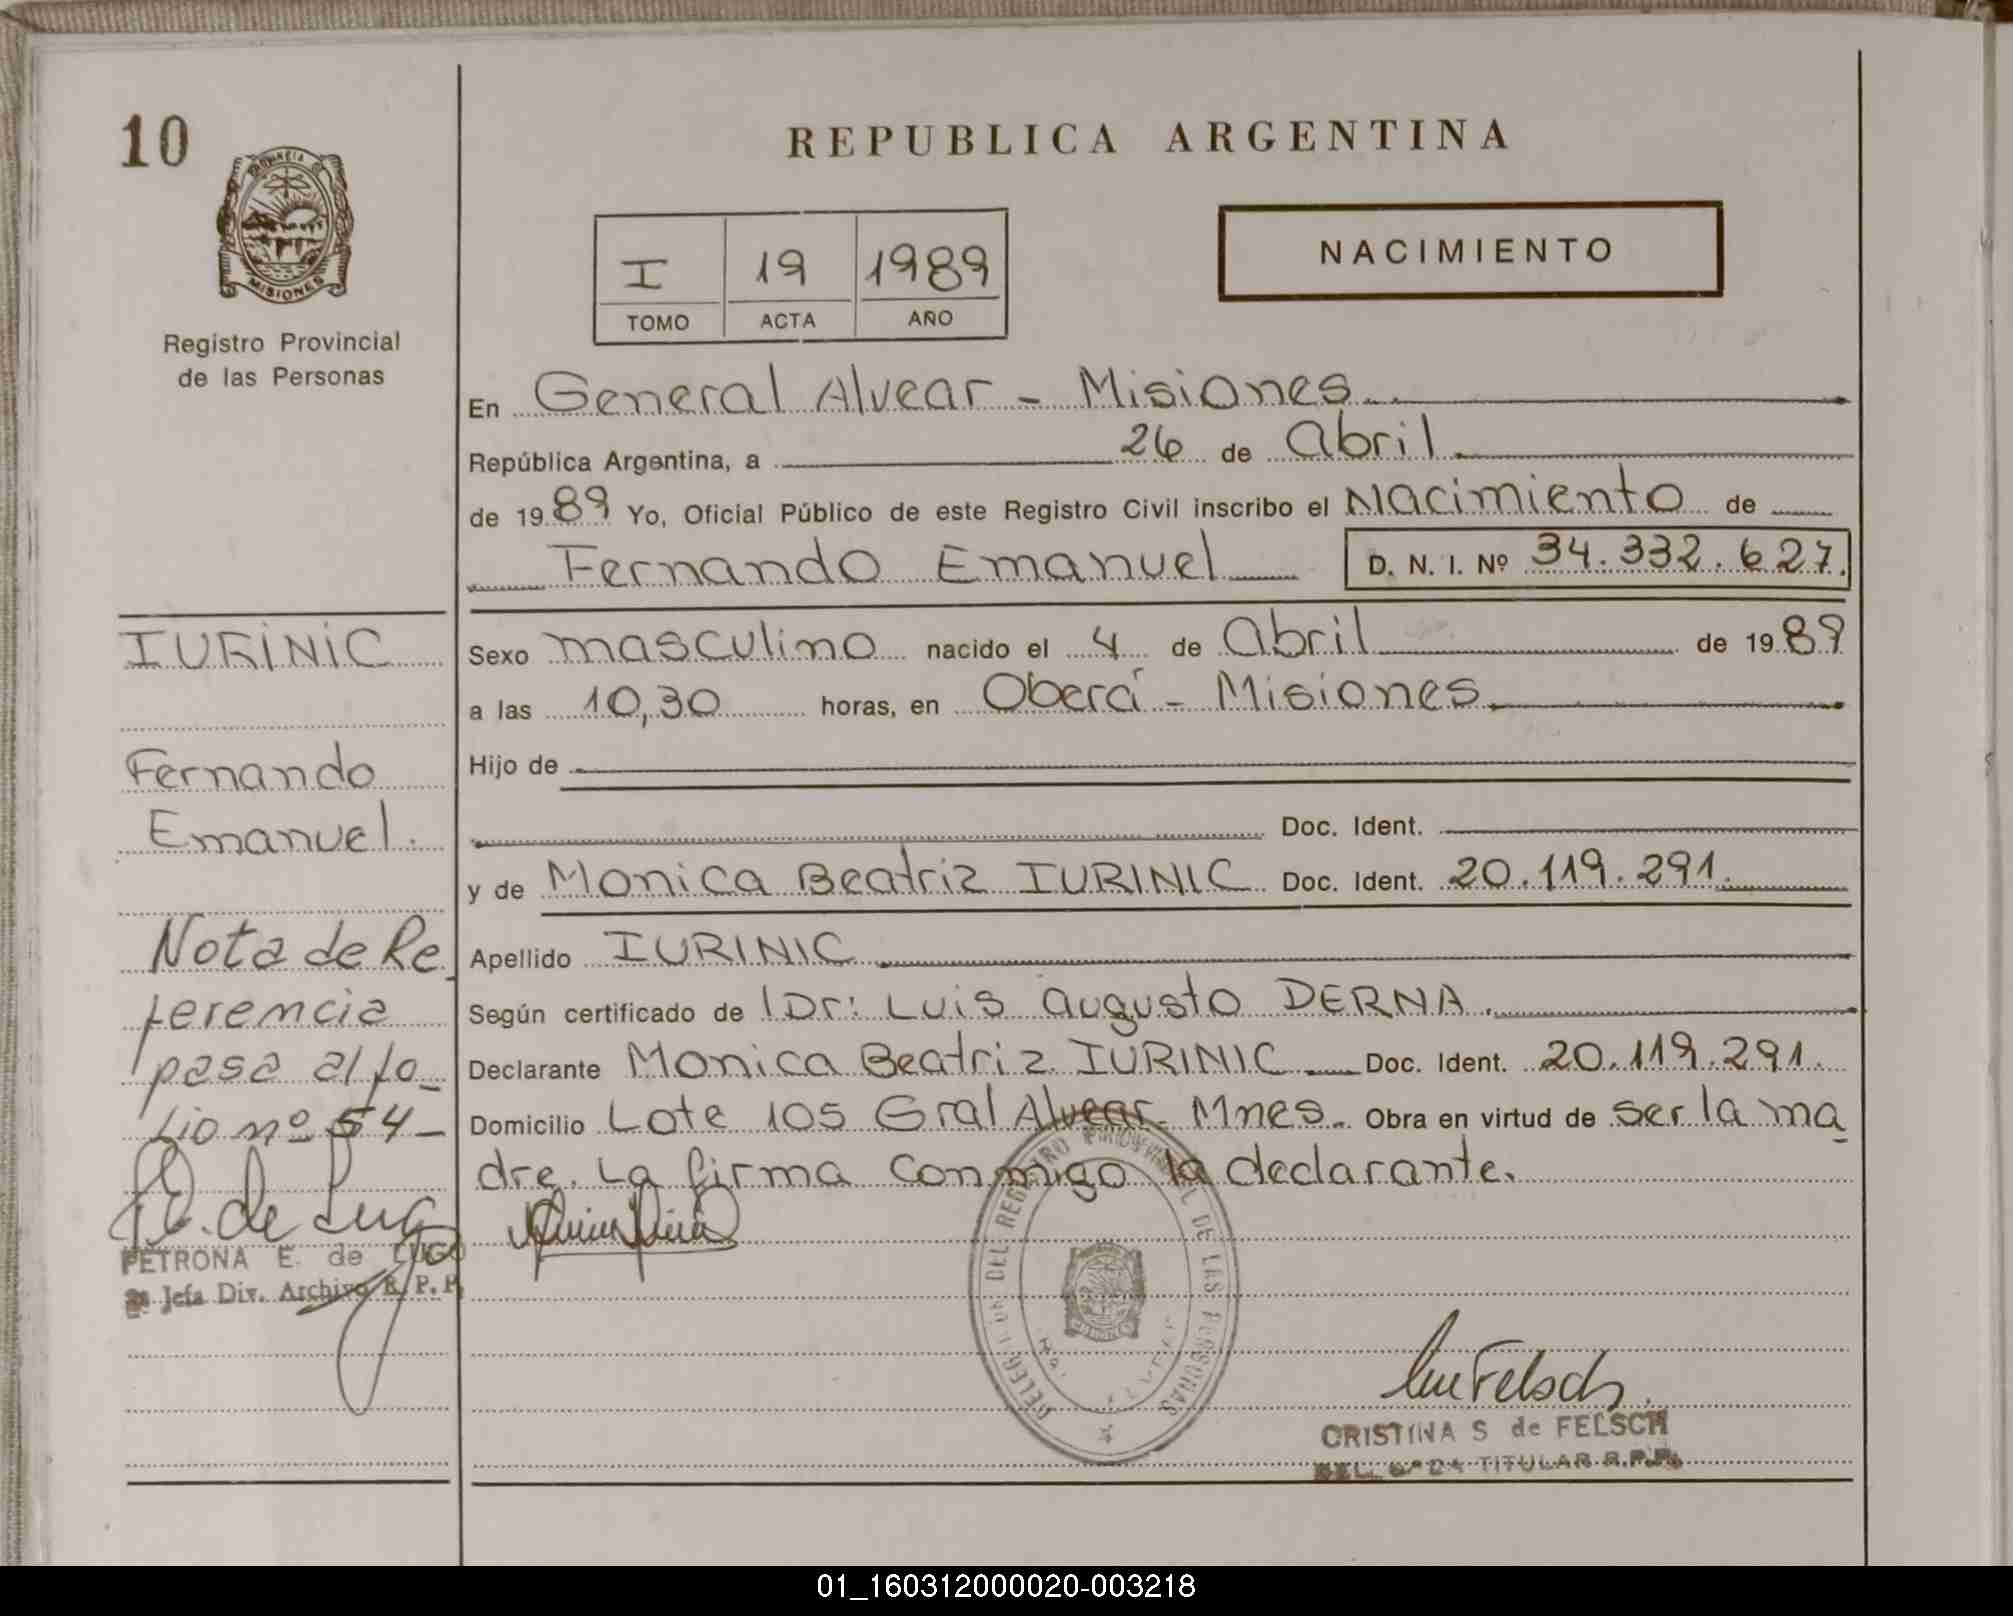 10
REPUBLICA ARGENTINA
PROVINCIA D
MISIONES
NACIMIENTO
I 19 1989
TOMO ACTA AÑO
Registro Provincial
de las Personas
En General Alvear - Misiones
República Argentina, a 26 de Abril
de 1989 Yo, Oficial Público de este Registro Civil inscribo el Nacimiento de
Fernando Emanuel D. N. I. Nº 34.332.627.
Sexo masculino nacido el 4 de Abril de 1989
a las 10,30 horas, en Oberá - Misiones
Hijo de
Doc. Ident.
y de Monica Beatriz IURINIC Doc. Ident. 20.119.291.
Apellido IURINIC
Según certificado de l Dr: Luis Augusto DERNA.
Declarante Monica Beatriz IURINIC Doc. Ident. 20.119.291.
Domicilio Lote 105 Gral Alvear Mnes. Obra en virtud de ser la ma
dre. La firma conmigo la declarante.
IURINIC
Fernando
Emanuel.
Nota de Re
ferencia
pasa al fo_
lio nº 54_
E. de Lugo
PETRONA E. de LUGO
Jefa Div. Archivo R.P.P.
DELEGACION DEL REGISTRO PROVINCIAL DE LAS PERSONAS
Felsch
CRISTINA S de FELSCH
TITULAR R.P.P.
01_160312000020-003218